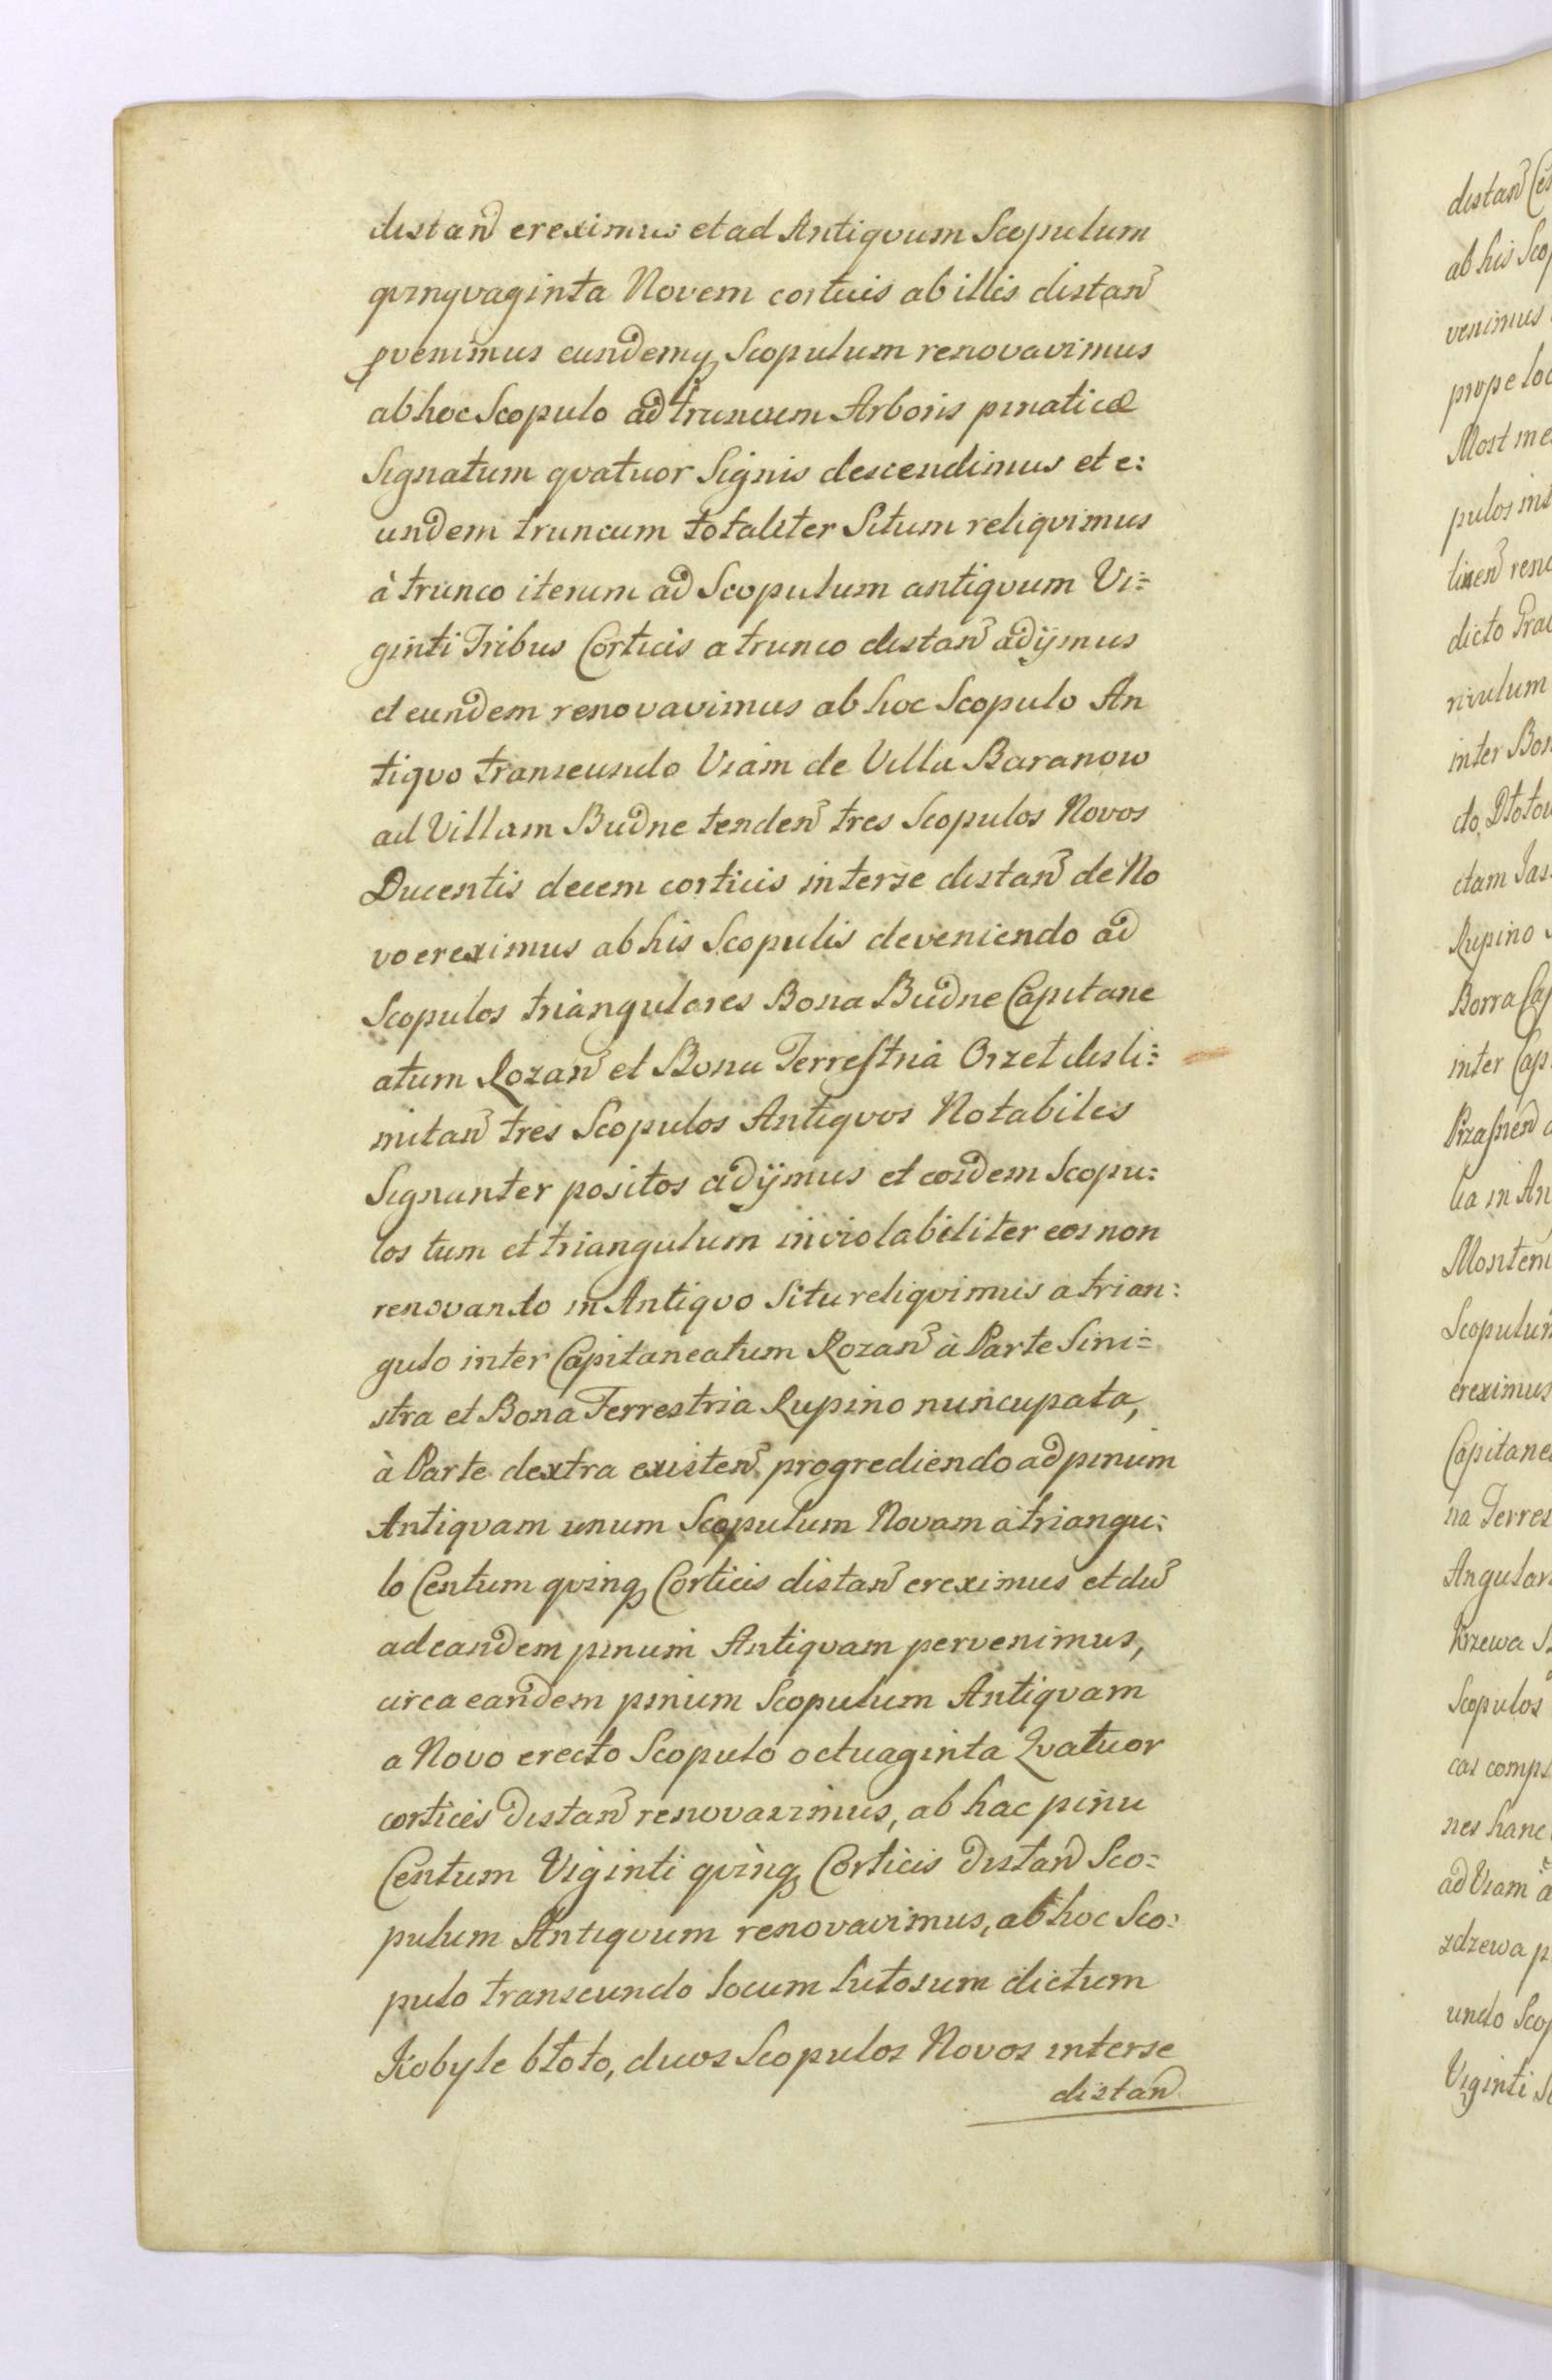 distan̄ ereximus et ad Antiqvum Scopulum
qvinqvaginta Novem corticis ab illis distan̄
pvenimus eundemq, Scopulum renovavimus
ab hoc Scopulo ad truncum Arboris pinaticæ
Signatum qvatuor Signis descendimus et e:
undem truncum totaliter Situm reliqvimus
à trunco iterum ad Scopulum antiqvum Vi=
ginti Tribus Corticis a trunco distan̄ adijmus
et eundem renovavimus ab hoc Scopulo An
tiqvo transeundo Viam de Villa Baranow
ad Villam Budne tenden̄ tres Scopulos Novos
Ducentis decem corticis interse distan̄ de No
vo ereximus ab his Scopulis deveniendo ad
Scopulos triangulares Bona Budne Capitane
atum Rozan̄ et Bona Terrestria Orzet disli=
mitan̄ tres Scopulos Antiqvos Notabiles
Signanter positos adijmus et eosdem Scopu:
los tum et triangulum inviolabiliter eos non
renovando in Antiqvo Situ reliqvimus a trian:
gulo inter Capitaneatum Rozan̄ à Parte Sini=
stra et Bona Terrestria Rupino nuncupata,
à Parte dextra existen̄ progrediendo ad pinum
Antiqvam unum Scopulum Novam a triangu:
lo Centum qvinq, Corticis distan̄ ereximus et dū
ad eandem pinum Antiqvam pervenimus,
circa eandem pinum Scopulum Antiqvam
a Novo erecto Scopulo octuaginta Qvatuor
corticis distan̄ renovavimus, ab hac pinu
Centum Viginti qvinq, Corticis distan̄ Sco=
pulum Antiqvum renovavimus, ab hoc Sco:
pulo transeundo locum lutosum dictum
Kobyle błoto, duos Scopulos Novos interse
distan̄
distan̄
ab his
venimus
prope
Most
pulos
tinen̄
dicto
rivulum
inter
ctam
Rupino
Borra
inter
Przasnen̄
lia in
ereximus
na
Krzewa
Scopulos
nes hanc
ad Viam
zdrzewa
undo
Viginti